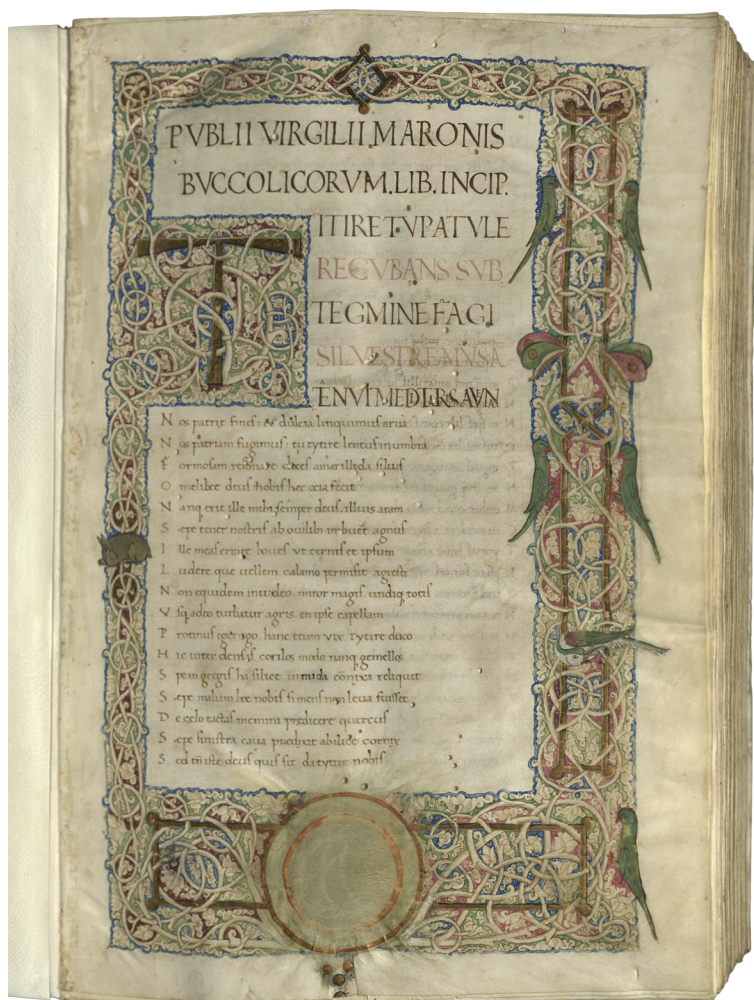 PVBLII VIRGILII MARONIS
BVCCOLICORVM.LIB.INCIP.
TITIRE T.V PATVLE
RECVBANS SVB
TEGMINE FAGI
SILVESTRE MVSA
TENVI MEDI
Nos patrie fines: & dulcia linquimus arua
Nos patriam fugimus: tu tytire lentus in umbra
Formosam amarillida siluas
O melibee deus nobis hec ocia fecit
Nanq erit ille mihi semper deus. illius aram
Sepe tener nostris ab ouilib agnus
Ille meas errare boues vt cernis et ipsum
Ludere que uellem calamo permisit agresti
Non equidem inuideo. miror magis. undiq totis
Vsq adeo turbatur agris. en ipse capellam
Protinus ago. hanc etiam vix Tytire duco
Hic inter densas corilos modo nunq gemellos
Spem gregis ha silice in nuda conixa reliquit
Sepe malum hoc nobis si mens non leua fuisset
De celo tactas memini predicere quercus
Sepe sinistra caua predixit ab ilice cornix
Sed tn iste deus quis sit da tytire nobis